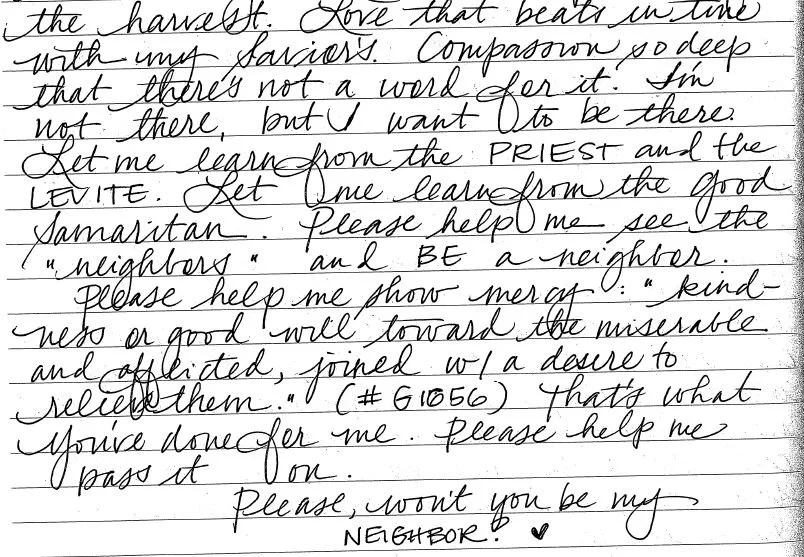 the harvest. Love that beats in time
with my Savior's. Compassion so deep
that there's not a word for it. I'm
not there, but I want to be there.
Let me learn from the PRIEST and the
LEVITE. Let me learn from the Good
Samaritan. Please help me see the
"neighbors" and BE a neighbor.
Please help me show mercy: "kind-
ness or good will toward the miserable
and afflicted, joined w/ a desire to
relieve them." (#G1656) That's what
You've done for me. Please help me
pass it on.
Please, won't you be my
NEIGHBOR? ♥